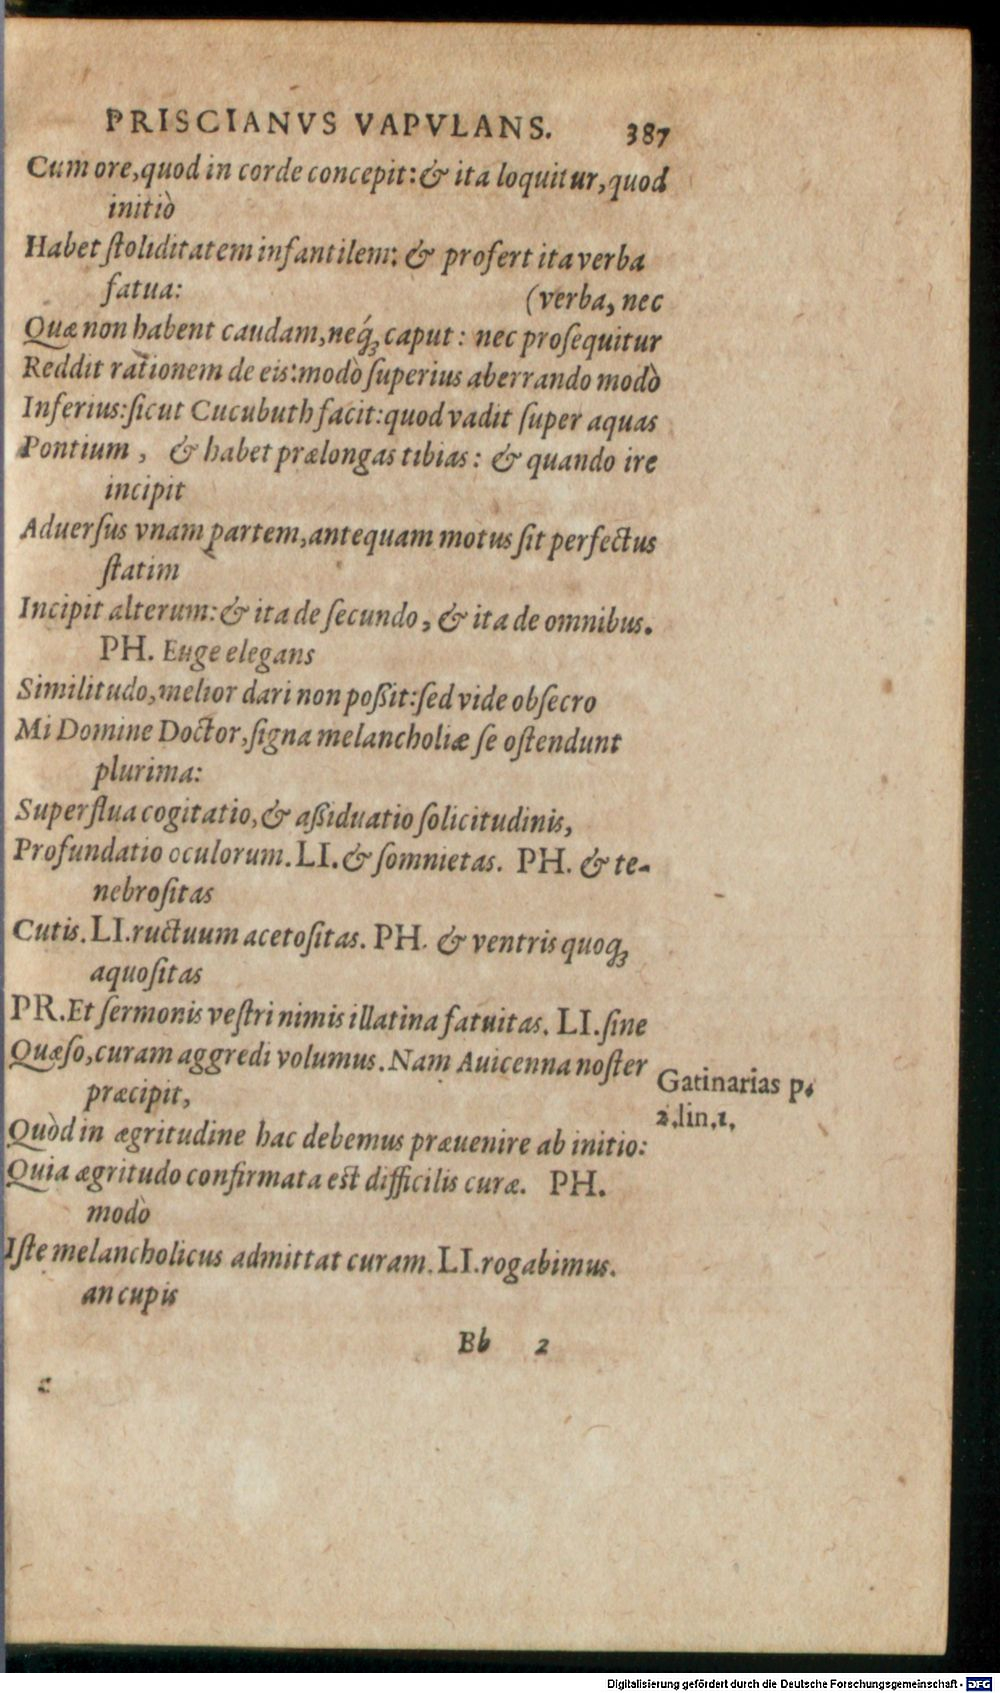 PRISCIANVS VAPVLANS. 387
Cum ore, quod in corde concepit: & ita loquitur, quod
initiò
Habet ſtoliditatem infantilem: & profert ita verba
fatua: (verba, nec
Quæ non habent caudam, neq́ꝫ caput: nec proſequitur
Reddit rationem de eis: modò ſuperius aberrando modò
Inferius: ſicut Cucubuth facit: quod vadit ſuper aquas
Pontium, & habet prælongas tibias: & quando ire
incipit
Aduerſus vnam partem, antequam motus ſit perfectus
ſtatim
Incipit alterum: & ita de ſecundo, & ita de omnibus.
PH. Euge elegans
Similitudo, melior dari non poßit: ſed vide obſecro
Mi Domine Doctor, ſigna melancholiæ ſe oſtendunt
plurima:
Superflua cogitatio, & aßiduatio ſolicitudinis,
Profundatio oculorum. LI. & ſomnietas. PH. & te-
nebroſitas
Cutis. LI. ructuum acetoſitas. PH. & ventris quoqꝫ
aquoſitas
PR. Et ſermonis veſtri nimis illatina fatuitas. LI. ſine
Quæſo, curam aggredi volumus. Nam Auicenna noſter
præcipit,
Gatinarias p.
2. lin. 1.
Quòd in ægritudine hac debemus præuenire ab initio:
Quia ægritudo confirmata eſt difficilis curæ. PH.
modò
Iſte melancholicus admittat curam. LI. rogabimus.
an cupis
Bb 2
Digitalisierung gefördert durch die Deutsche Forschungsgemeinschaft - DFG